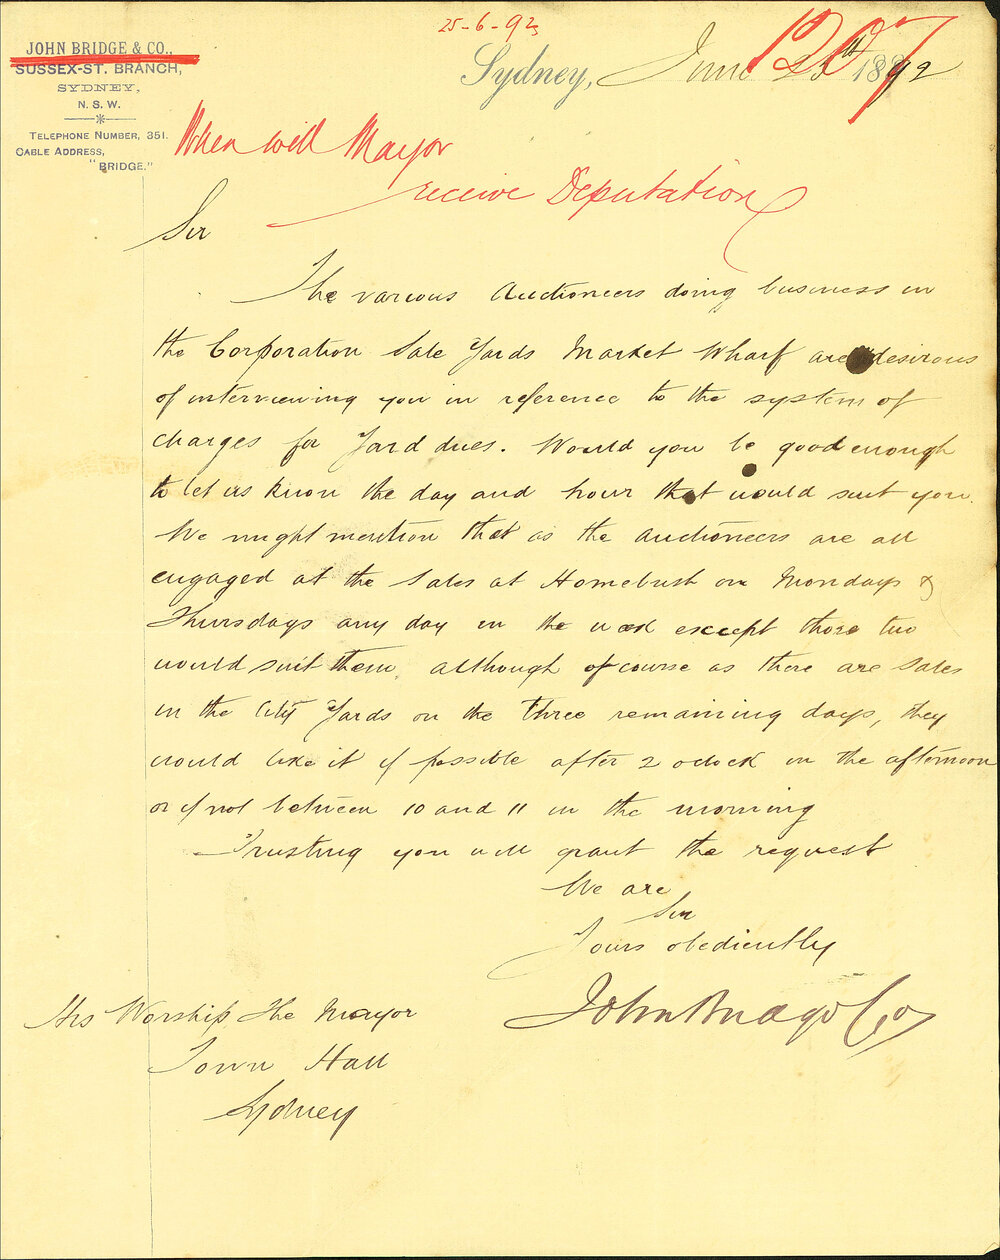 25-6-92
JOHN BRIDGE & CO.,
SUSSEX-ST. BRANCH,
SYDNEY,
N. S. W.
TELEPHONE NUMBER, 351.
CABLE ADDRESS,
"BRIDGE."
Sydney, June 25th 1892
When will Mayor
receive Deputation
Sir
The various Auctioneers doing business in
the Corporation Sale Yards Market Wharf are desirous
of interviewing you in reference to the system of
charges for Yard dues. Would you be good enough
to let us know the day and hour that would suit you.
We might mention that as the auctioneers are all
engaged at the Sales at Homebush on Mondays &
Thursdays any day in the week except those two
would suit them, although of course as there are Sales
in the City Yards on the three remaining days, they
would like it if possible after 2 oclock in the afternoon
or if not between 10 and 11 in the morning
Trusting you will grant the request
We are
Sir
Yours obediently
John Bridge & Co
His Worship The Mayor
Town Hall
Sydney